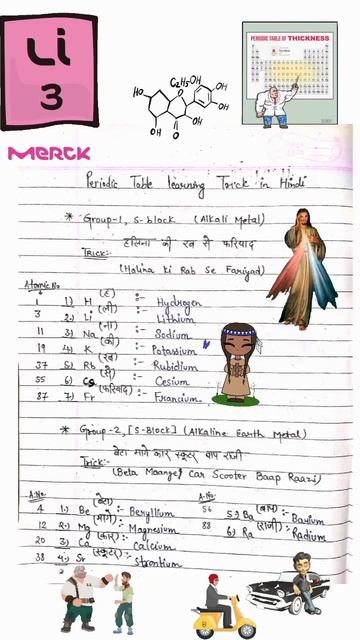 Li
3
PERIODIC TABLE OF THICKNESS
C₂H₅OH
HO
O
OH
OH
OH
OH
O
MERCK
Periodic Table learning Trick in Hindi
* Group-1, S-block (Alkali Metal)
हलिना की रब से फरियाद
TRICK:-
(Halina ki Rab Se Fariyad)
Atomic No
1 1) H (ह) :- Hydrogen
3 2) Li (ली) :- Lithium
11 3) Na (ना) :- Sodium
19 4) K (की) :- Potassium
37 5) Rb (रब) :- Rubidium
55 6) Cs (से) :- Cesium
87 7) Fr (फरियाद) :- Francium
* Group-2, [S-Block] (Alkaline Earth Metal)
बेटा मांगे कार स्कूटर बाप राजी
Trick:-
(Beta Maange Car Scooter Baap Raazi)
A.No.
4 1) Be (बेटा) :- Beryllium
12 2) Mg (मांगे) :- Magnesium
20 3) Ca (कार) :- Calcium
38 4) Sr (स्कूटर) :- Strontium
A.No.
56 5) Ba (बाप) :- Barium
88 6) Ra (राजी) :- Radium